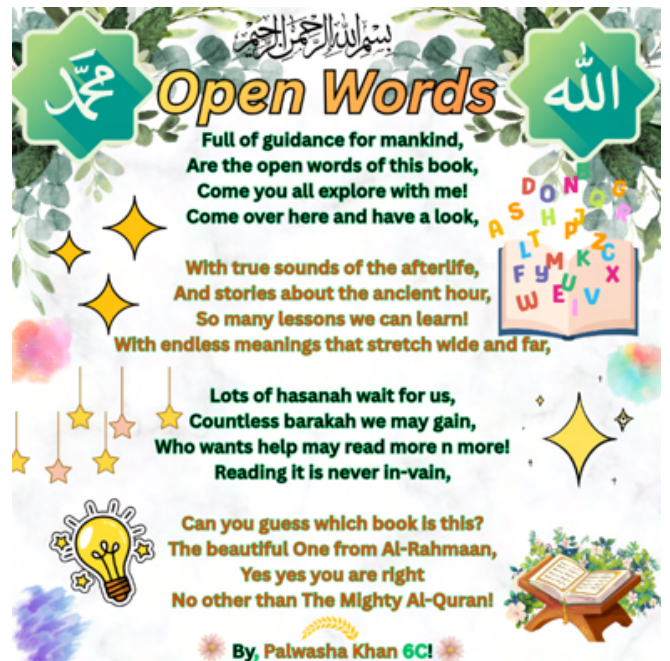 بسم الله الرحمن الرحيم
محمد
الله
Open Words
Full of guidance for mankind,
Are the open words of this book,
Come you all explore with me!
Come over here and have a look,
With true sounds of the afterlife,
And stories about the ancient hour,
So many lessons we can learn!
With endless meanings that stretch wide and far,
Lots of hasanah wait for us,
Countless barakah we may gain,
Who wants help may read more n more!
Reading it is never in-vain,
Can you guess which book is this?
The beautiful One from Al-Rahmaan,
Yes yes you are right
No other than The Mighty Al-Quran!
By, Palwasha Khan 6C!